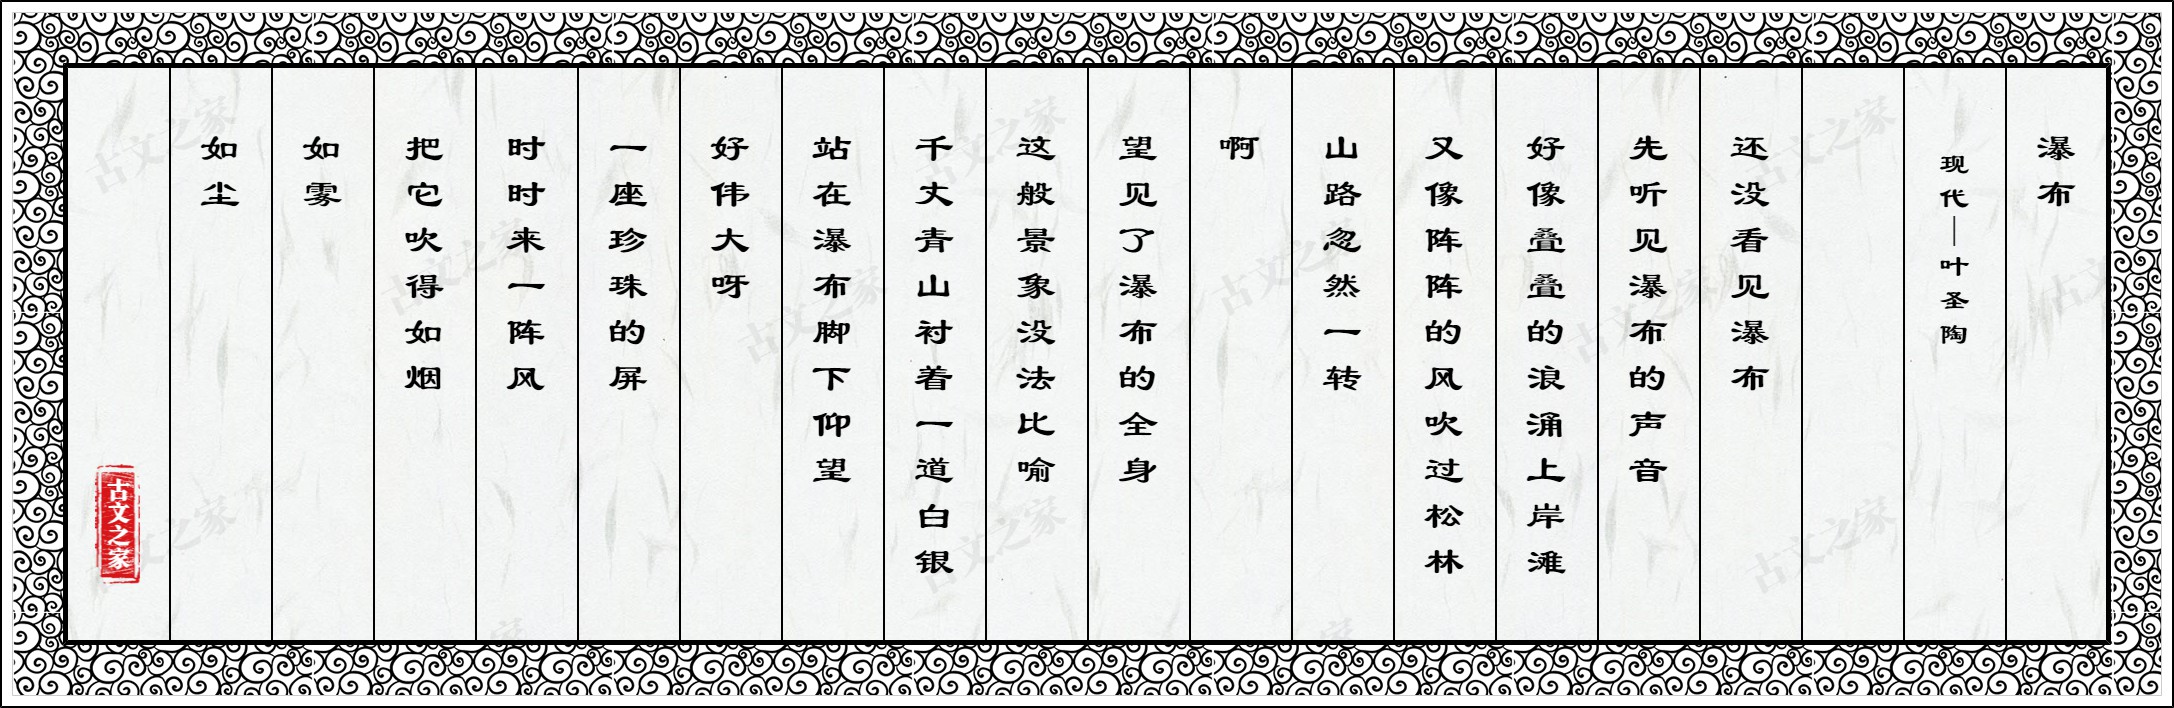 瀑布
现代—叶圣陶
还没看见瀑布
先听见瀑布的声音
好像叠叠的浪涌上岸滩
又像阵阵的风吹过松林
山路忽然一转
啊
望见了瀑布的全身
这般景象没法比喻
千丈青山衬着一道白银
站在瀑布脚下仰望
好伟大呀
一座珍珠的屏
时时来一阵风
把它吹得如烟
如雾
如尘
古文之家